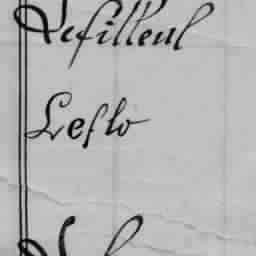 Lefilleul
Leflo